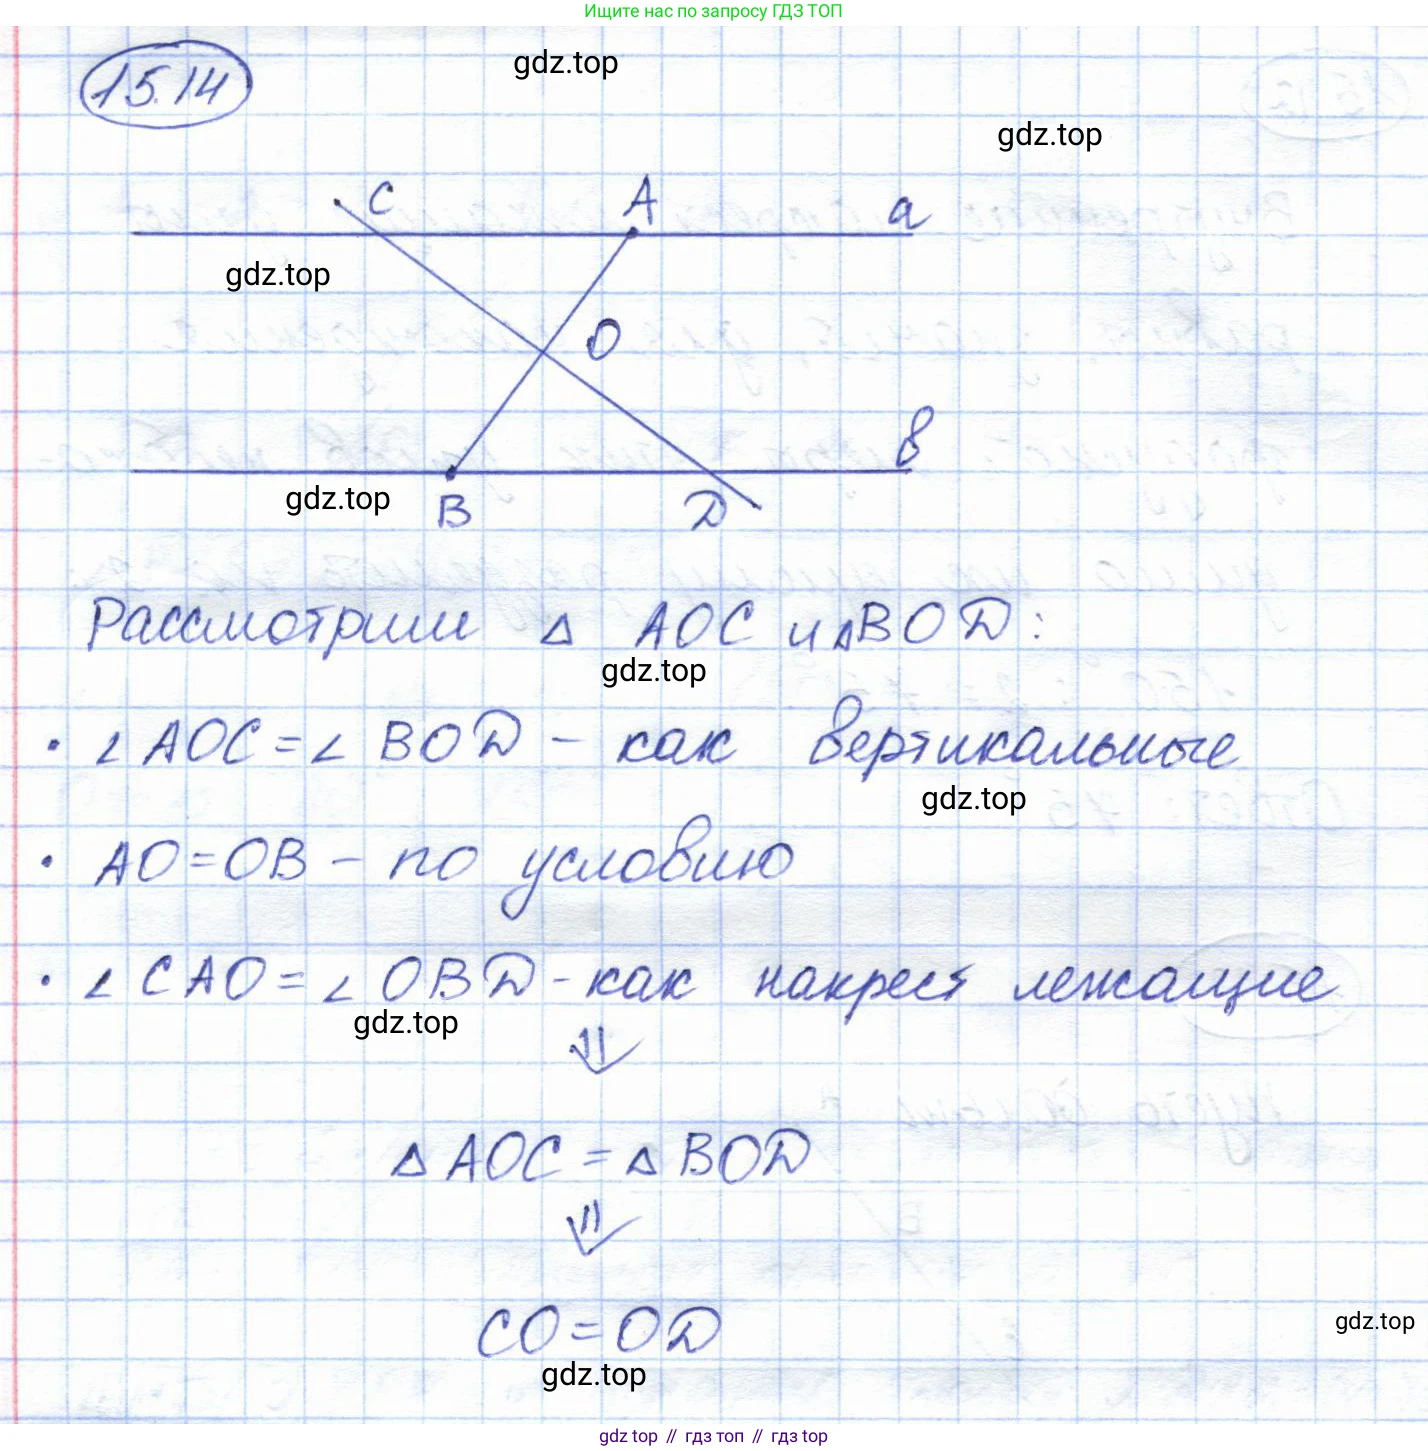 Ищите нас по запросу ГДЗ ТОП
15.14
gdz.top
gdz.top
C
A
a
gdz.top
O
b
gdz.top
B
D
Рассмотрим Δ AOC и Δ BOD:
gdz.top
· ∠ AOC = ∠ BOD – как вертикальные
gdz.top
· AO = OB – по условию
· ∠ CAO = ∠ OBD – как накрест лежащие
gdz.top
⇓
Δ AOC = Δ BOD
⇓
CO = OD
gdz.top
gdz.top
gdz top // гдз топ // гдз top